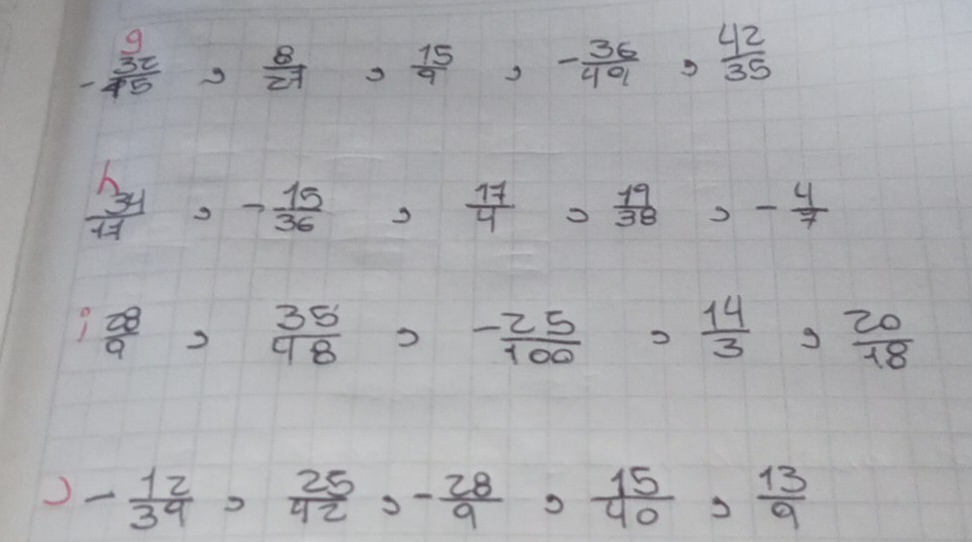 g -32/45 , 8/27 , 15/9 , -36/49 , 42/35
h 34/11 , -15/36 , 17/4 , 19/38 , -4/7
i 28/9 , 35/48 , -25/100 , 14/3 , 20/18
J -12/34 , 25/42 , -28/9 , 15/40 , 13/9